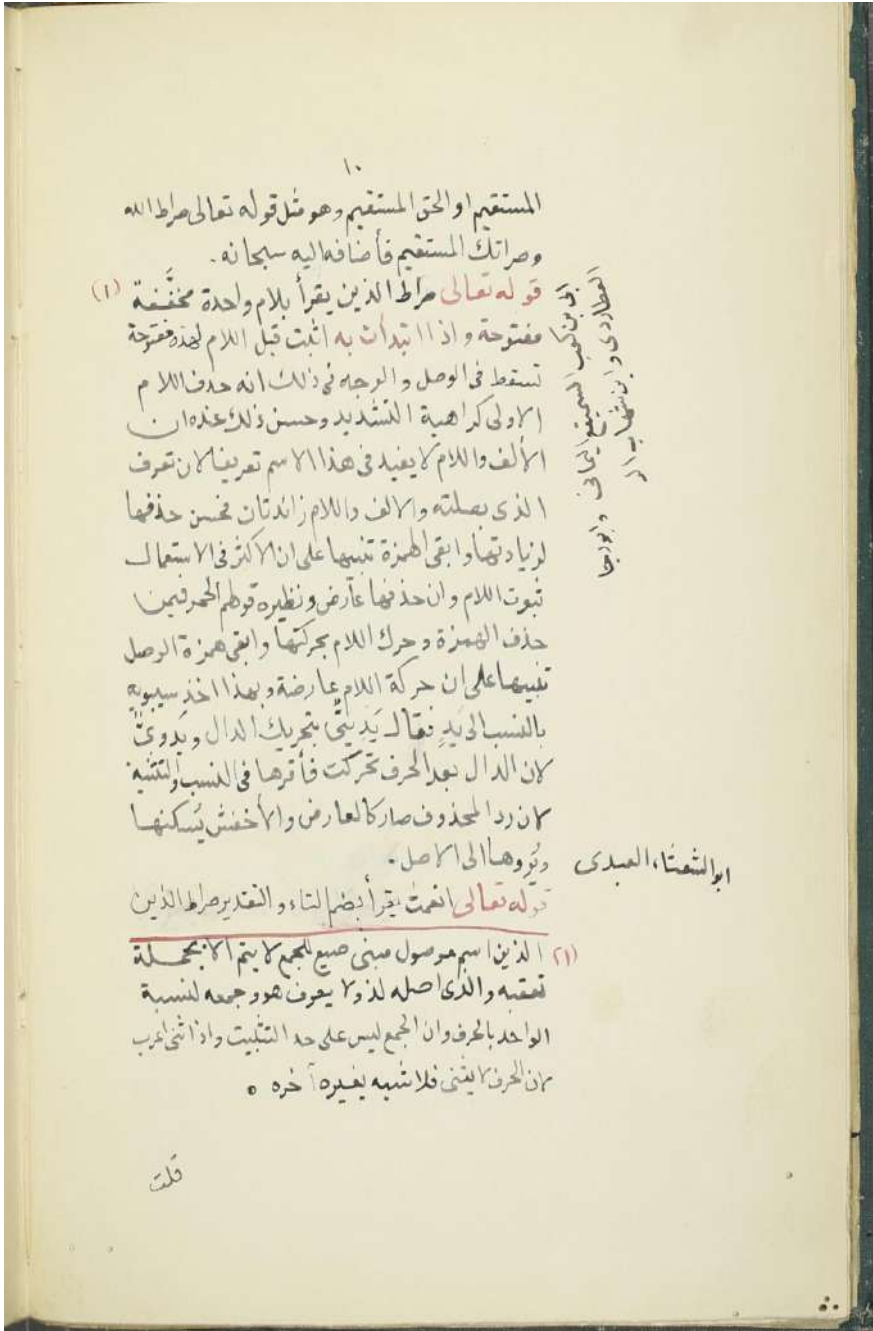 ١٠
المستقيم او الحق المستقيم وهو مثل قوله تعالى صراط الله
وصراتك المستقيم فأضافه اليه سبحانه .
قوله تعالى صراط الذين يقرأ بلام واحدة مخفَّفة (١)
مفتوحة واذا ابتدأت به اثبت قبل اللام همزة مفتوحة
تسقط فى الوصل والوجه فى ذلك انه حذف اللام
الاولى كراهية التشديد وحسن ذلك عنده ان
الألف واللام لا يفيد فى هذا الاسم تعريفا لان تعرف
الذى بصلته والالف واللام زائدتان فحسن حذفها
لزيادتها وابقى الهمزة تنبيها على ان الاكثر فى الاستعمال
ثبوت اللام وان حذفها عارض ونظيره قولهم الحمر فيمن
حذف الهمزة وحرك اللام بحركتها وابقى همزة الوصل
تنبيها على ان حركة اللام عارضة وبهذا اخذ سيبويه
بالنسب الى يَدٍ فقال يَدِيٌّ بتحريك الدال ويَدوىٌّ
لان الدال بعد الحرف تحركت فأقرها فى النسب والتثنية
لان رد المحذوف صار كالعارض والأخفش يُسكنها
ويُروها الى الاصل .
قوله تعالى انعمتُ يقرأ بضم التاء والتقدير صراط الذين
(١) الذين اسم موصول مبنى صيغ للجمع لا يتم الا بجملة
تعقبه والذى اصله لذ ولا يعرف هو وجمعه لنسبة
الواحد بالحرف وان الجمع ليس على حد التثليت واذا ثنى اعرب
لان الحرف لا يثنى فلا شبه يغيره آخره ٥
قلت
ابى بن كعب السميقع اليمانى وابو رجا
العطاردى وابن شهاب الز
ابو الشعثاء العبدى